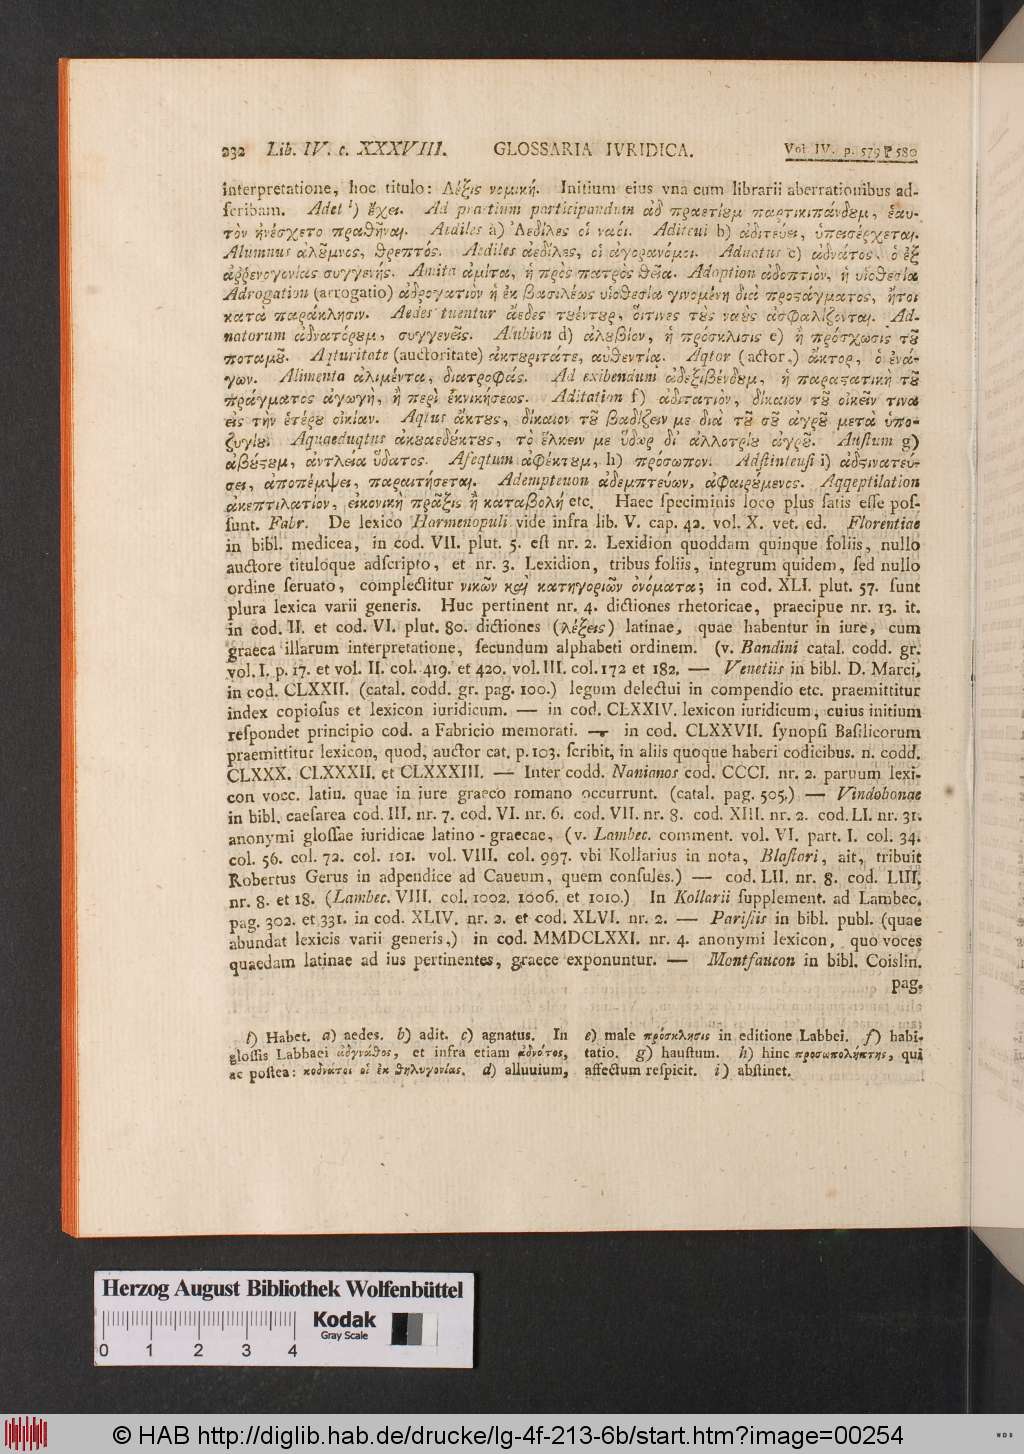 232 Lib. IV. c. XXXVIII. GLOSSARIA IVRIDICA. Vol. IV. p. 579 P 580
interpretatione, hoc titulo: Λέξις νομική. Initium eius vna cum librarii aberrationibus ad-
scribam. Adet ¹) ἔχει. Ad praetium participandum ἀδ πραετίουμ παρτικιπάνδουμ, ἑαυ-
τὸν ἠνέσχετο πραθῆναι. Aediles a) Ἀεδίλες οἱ ναοί. Aditeui b) ἀδιτεύει, ὑπεισέρχεται.
Alumnus ἀλοῦμνος, θρεπτός. Aediles ἀεδίλες, οἱ ἀγορανόμοι. Adnatus c) ἀδνάτος. ὁ ἐξ
ἀῤῥενογονίας συγγενής. Amita ἀμίτα, ἡ πρὸς πατρὸς θεία. Adoption ἀδοπτιὸν, ἡ υἱοθεσία
Adrogation (arrogatio) ἀδρογατιὸν ἡ ἐκ βασιλέως υἱοθεσία γινομένη διὰ προστάγματος, ἤτοι
κατὰ παράκλησιν. Aedes tuentur ἄεδες τουέντουρ, οἵτινες τοὺς ναοὺς ἀσφαλίζονται. Ad-
natorum ἀδνατόρουμ, συγγενεῖς. Alubion d) ἀλουβίον, ἡ πρόσκλισις e) ἢ πρόσχωσις τοῦ
ποταμοῦ. Aqturitate (auctoritate) ἀκτουριτάτε, αὐθεντία. Aqtor (actor.) ἄκτορ, ὁ ἐνά-
γων. Alimenta ἀλιμέντα, διατροφάς. Ad exibendum ἀδεξιβένδουμ, ἡ παραστατικὴ τοῦ
πράγματος ἀγωγὴ, ἢ περὶ ἐκνικήσεως. Aditation f) ἀδιτατιὸν, δίκαιον τοῦ οἰκεῖν τινα
εἰς τὴν ἑτέρου οἰκίαν. Aqtus ἄκτους, δίκαιον τοῦ βαδίζειν με διὰ τοῦ σοῦ ἀγροῦ μετὰ ὑπο-
ζυγίου. Aquaeduqtus ἀκουαεδούκτους, τὸ ἕλκειν με ὕδωρ δι' ἀλλοτρίου ἀγροῦ. Austum g)
ἀβούστουμ, ἀντλεία ὕδατος. Afeqtum ἀφέκτουμ, h) πρόσωπον. Adstinteusi i) ἀδστινατεύ-
σει, ἀποπέμψει, παραιτήσεται. Ademptenon ἀδεμπτεύων, ἀφαιρούμενος. Aqqeptilation
ἀκεπτιλατίον, εἰκονικὴ πρᾶξις ἢ καταβολή etc. Haec speciminis loco plus satis esse pos-
sunt. Fabr. De lexico Harmenopuli vide infra lib. V. cap. 42. vol. X. vet. ed. Florentiae
in bibl. medicea, in cod. VII. plut. 5. est nr. 2. Lexidion quoddam quinque foliis, nullo
auctore tituloque adscripto, et nr. 3. Lexidion, tribus foliis, integrum quidem, sed nullo
ordine seruato, complectitur νικῶν καὶ κατηγοριῶν ὀνόματα; in cod. XLI. plut. 57. sunt
plura lexica varii generis. Huc pertinent nr. 4. dictiones rhetoricae, praecipue nr. 13. it.
in cod. II. et cod. VI. plut. 80. dictiones (λέξεις) latinae, quae habentur in iure, cum
graeca illarum interpretatione, secundum alphabeti ordinem. (v. Bandini catal. codd. gr.
vol. I. p. 17. et vol. II. col. 419. et 420. vol. III. col. 172 et 182. — Venetiis in bibl. D. Marci,
in cod. CLXXII. (catal. codd. gr. pag. 100.) legum delectui in compendio etc. praemittitur
index copiosus et lexicon iuridicum. — in cod. CLXXIV. lexicon iuridicum, cuius initium
respondet principio cod. a Fabricio memorati. — in cod. CLXXVII. synopsi Basilicorum
praemittitur lexicon, quod, auctor cat. p. 103. scribit, in aliis quoque haberi codicibus. n. codd.
CLXXX. CLXXXII. et CLXXXIII. — Inter codd. Nanianos cod. CCCI. nr. 2. paruum lexi-
con vocc. latin. quae in iure graeco romano occurrunt. (catal. pag. 505.) — Vindobonae
in bibl. caesarea cod. III. nr. 7. cod. VI. nr. 6. cod. VII. nr. 8. cod. XIII. nr. 2. cod. LI. nr. 31.
anonymi glossae iuridicae latino-graecae, (v. Lambec. comment. vol. VI. part. I. col. 34.
col. 56. col. 72. col. 101. vol. VIII. col. 997. vbi Kollarius in nota, Blastori, ait, tribuit
Robertus Gerus in adpendice ad Caueum, quem consules.) — cod. LII. nr. 8. cod. LIII.
nr. 8. et 18. (Lambec. VIII. col. 1002. 1006. et 1010.) In Kollarii supplement. ad Lambec.
pag. 302. et 331. in cod. XLIV. nr. 2. et cod. XLVI. nr. 2. — Parisiis in bibl. publ. (quae
abundat lexicis varii generis.) in cod. MMDCLXXI. nr. 4. anonymi lexicon, quo voces
quaedam latinae ad ius pertinentes, graece exponuntur. — Montfaucon in bibl. Coislin.
pag.
l) Habet. a) aedes. b) adit. c) agnatus. In
glossis Labbaei ἀδγνάθος, et infra etiam ἀδνότος,
ac postea: κοδνάτοι οἱ ἐκ θηλυγονίας. d) alluuium,
e) male πρόσκλησις in editione Labbei. f) habi-
tatio. g) haustum. h) hinc προσωπολήπτης, qui
affectum respicit. i) abstinet.
Herzog August Bibliothek Wolfenbüttel
Kodak
Gray Scale
0 1 2 3 4
© HAB http://diglib.hab.de/drucke/lg-4f-213-6b/start.htm?image=00254